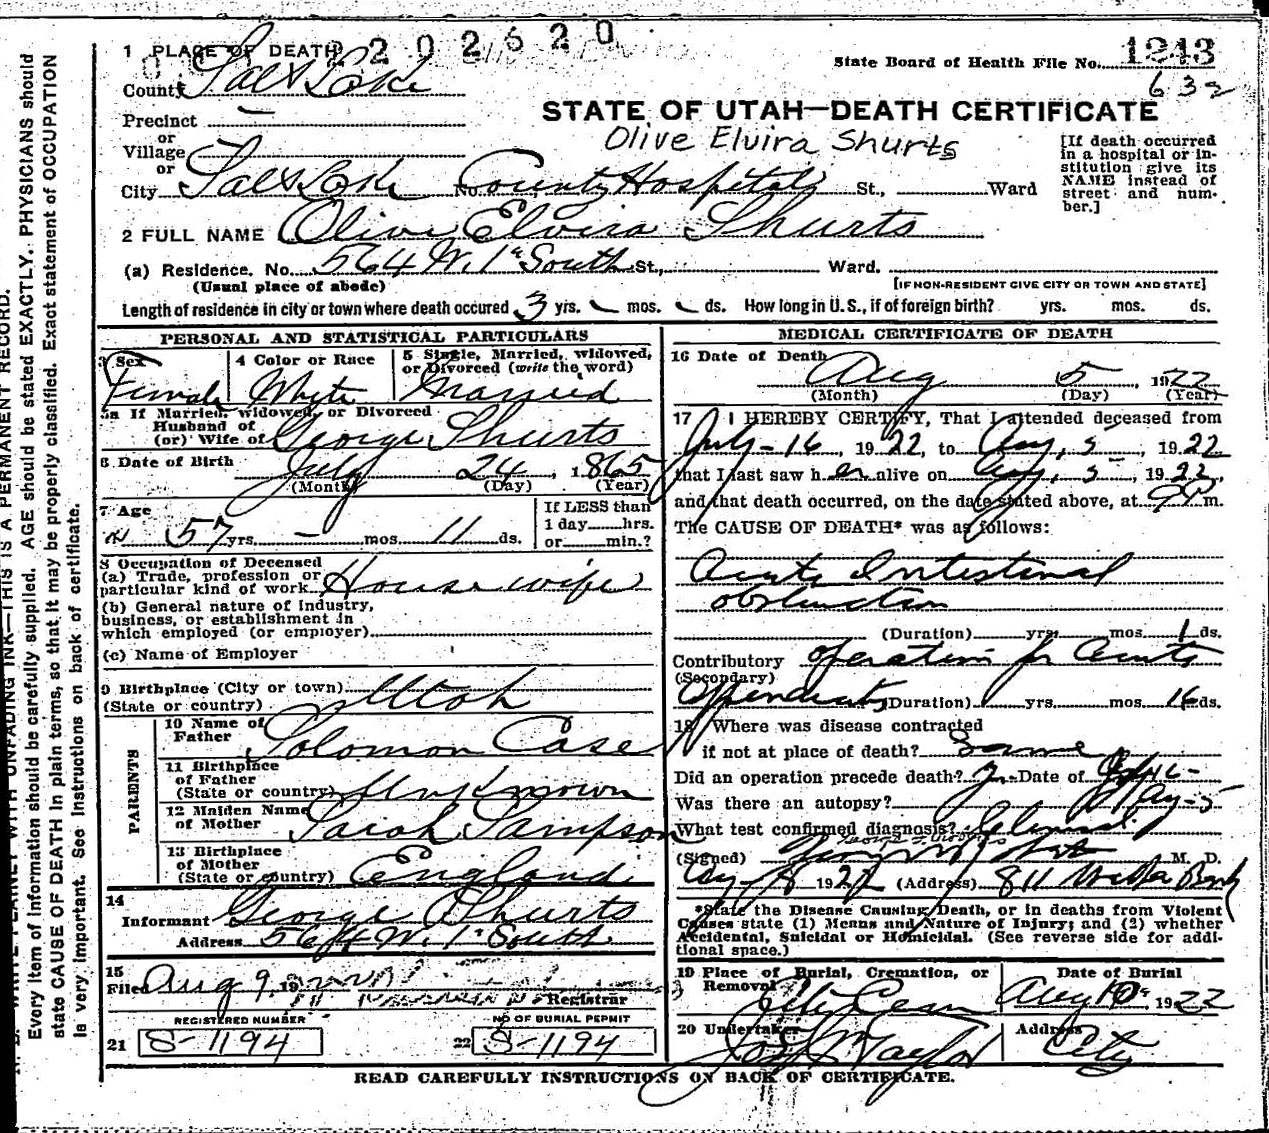 1 PLACE OF DEATH 2202620
State Board of Health File No. 1243
632
County Salt Lake
STATE OF UTAH—DEATH CERTIFICATE
Precinct —
Olive Elvira Shurts
or
Village
or
City Salt Lake No. County Hospital St., Ward
[If death occurred
in a hospital or in-
stitution give its
NAME instead of
street and num-
ber.]
2 FULL NAME Olive Elvira Shurts
(a) Residence. No. 564 W. 1st South St., Ward.
(Usual place of abode)
[IF NON-RESIDENT GIVE CITY OR TOWN AND STATE]
Length of residence in city or town where death occured 3 yrs. mos. ds. How long in U.S., if of foreign birth? yrs. mos. ds.
PERSONAL AND STATISTICAL PARTICULARS
3 Sex
4 Color or Race
5 Single, Married, widowed,
or Divorced (write the word)
Female White Married
5a If Married, widowed, or Divorced
Husband of
(or) Wife of George Shurts
6 Date of Birth July 24, 1865
(Month) (Day) (Year)
7 Age
57 yrs. — mos. 11 ds.
If LESS than
1 day hrs.
or min.?
8 Occupation of Deceased
(a) Trade, profession or
particular kind of work House wife
(b) General nature of industry,
business, or establishment in
which employed (or employer)
(c) Name of Employer
9 Birthplace (City or town)
(State or country) Utah
PARENTS
10 Name of
Father Solomon Case
11 Birthplace
of Father
(State or country) Unknown
12 Maiden Name
of Mother Sarah Sampson
13 Birthplace
of Mother
(State or country) England
14
Informant George Shurts
Address 564 W. 1st South
15
Filed Aug 9, 19
Registrar
REGISTERED NUMBER
21 S-1194
NO OF BURIAL PERMIT
22 S-1194
MEDICAL CERTIFICATE OF DEATH
16 Date of Death
Aug 5, 1922
(Month) (Day) (Year)
17 I HEREBY CERTIFY, That I attended deceased from
July-16, 1922, to Aug, 5, 1922
that I last saw her alive on Aug, 5, 1922,
and that death occurred, on the date stated above, at 9 P m.
The CAUSE OF DEATH* was as follows:
Acute Intestinal
obstruction
(Duration) yrs. mos. 1 ds.
Contributory operation for acute
(Secondary)
Appendicitis (Duration) yrs. mos. 16 ds.
18 Where was disease contracted
if not at place of death? Same
Did an operation precede death? Date of
Was there an autopsy?
What test confirmed diagnosis? Clinical
(Signed) M. D.
Aug-8 1922 (Address) 811 Walker Bank
*State the Disease Causing Death, or in deaths from Violent
Causes state (1) Means and Nature of Injury; and (2) whether
Accidental, Suicidal or Homicidal. (See reverse side for addi-
tional space.)
19 Place of Burial, Cremation, or
Removal City Cem
Date of Burial
Aug 10, 1922
20 Undertaker
Jos. Taylor
Address
City
READ CAREFULLY INSTRUCTIONS ON BACK OF CERTIFICATE.
WRITE PLAINLY WITH UNFADING INK—THIS IS A PERMANENT RECORD.
Every item of information should be carefully supplied. AGE should be stated EXACTLY. PHYSICIANS should
state CAUSE OF DEATH in plain terms, so that it may be properly classified. Exact statement of OCCUPATION
is very important. See instructions on back of certificate.